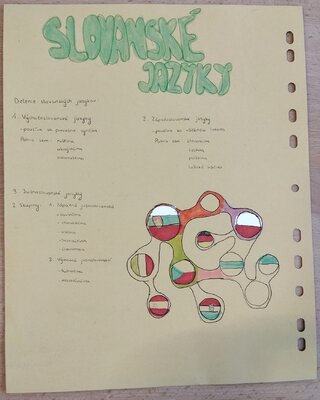 SLOVANSKÉ
JAZYKY
Delenie slovanských jazykov:
1. Východoslovanské jazyky
- používa sa
Patria sem: ruština
ukrajinčina
bieloruština
2. Západoslovanské jazyky
- používa sa
Patria sem: slovenčina
čeština
poľština
lužická srbčina
3. Južnoslovanské jazyky
2 Skupiny: 1. Západné južnoslovanské
- slovinčina
- chorvátčina
- srbčina
- bosniančina
2. Východné južnoslovanské
- bulharčina
- macedónčina